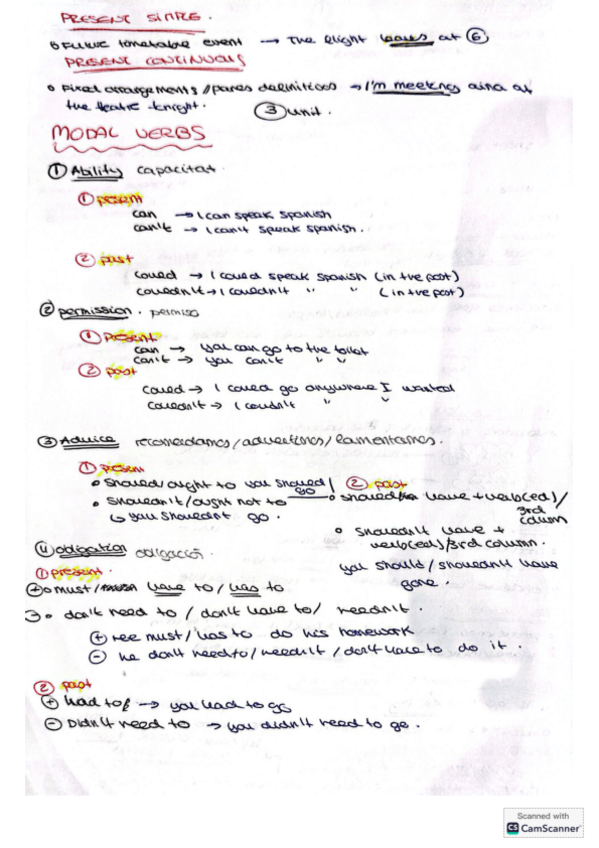 PRESENT SIMPLE.
Future timetable event → The flight leaves at 6
PRESENT CONTINUOUS
Fixed arrangements / planes definitivos → I'm meeting at
the theatre tonight.
3 unit.
MODAL VERBS
1 Ability capacitat.
1 present
can → I can speak spanish
can't → I can't speak spanish.
2 past
could → I could speak spanish (in the past)
couldn't → I couldn't " " (in the past)
2 permission. permiso
1 Present
can → you can go to the toilet
can't → you can't " "
2 past
could → I could go anywhere I wanted
couldn't → I couldn't " "
3 Advice recomendamos / advertimos / lamentamos.
1 present
should/ought to you should go
shouldn't/ought not to
↳ you shouldn't go.
2 past
should have + verb(ed)/
3rd column
shouldn't have +
verb(ed)/3rd column.
you should/shouldn't have
gone.
4 obligation obligación.
1 present.
+ must / have to / has to
- don't need to / don't have to / needn't.
+ must / has to do his homework
- he don't need to / needn't / don't have to do it.
2 past
+ had to → you had to go
- Didn't need to → you didn't need to go.
Scanned with
CS CamScanner